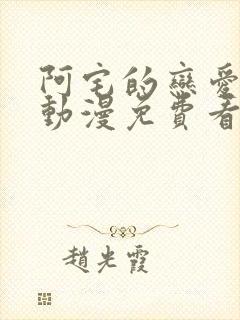 阿宅的戀愛
動漫免費看
趙光霞